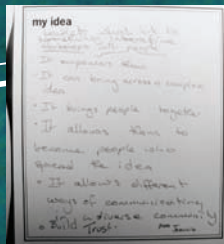 my idea
people
• It empowers them
• It can bring across a complex
idea
• It brings people together
• It allows them to
become people who
spread the idea
• It allows different
ways of communicating
• Build a diverse community
Trust.